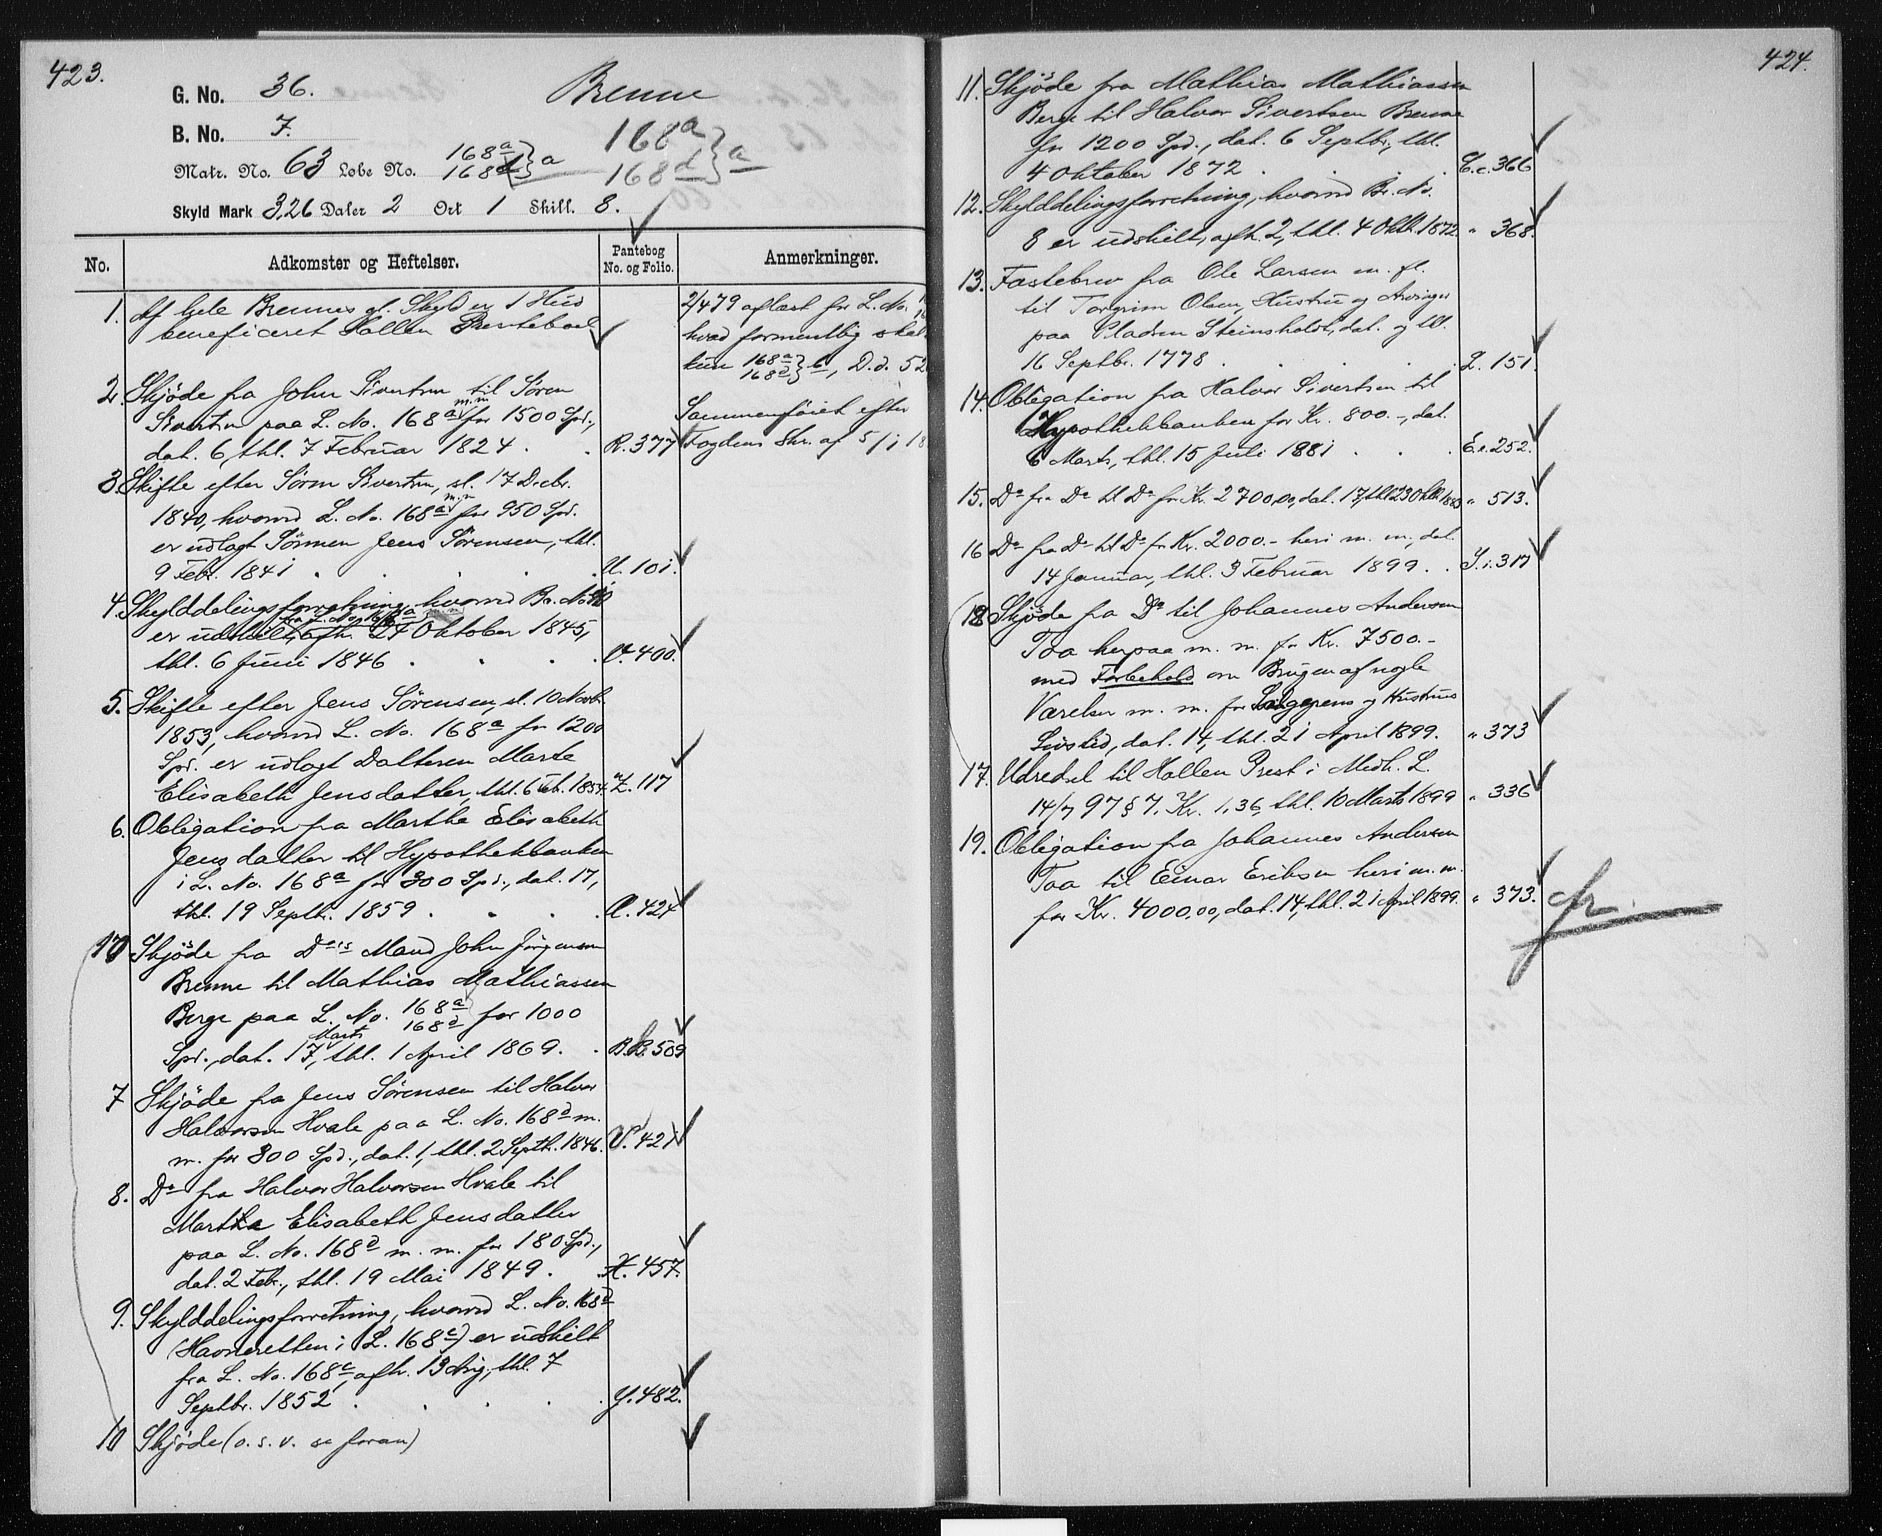 423.
G. No. 36. Brenne
B. No. 7.
168a
168d } a
Matr. No. 63 Løbe No. 168a
168d } a
Skyld Mark 3,26 Daler 2 Ort 1 Skill. 8.
No. Adkomster og Heftelser. Pantebog No. og Folio. Anmerkninger.
1. Af hele Brennes gl. Skyld er 1 Hud
beneficeret Hollen Presteboel
2/479 aflæst for L. No.
hvad formentlig skal
kun 168a
168d } b, D.d. 52
2. Skjöde fra John Sivertsen til Sören
Sivertsen paa L. No. 168a m.m for 1500 Spd.,
dat. 6, thl. 7 Februar 1824 . . R. 377
Sammenføiet efter
Fogdens Skr. af 5/1 18
3. Skifte efter Sören Sivertsen, sl. 17 Decbr.
1840, hvorved L. No. 168a m.m for 950 Spd.
er udlagt Sönnen Jens Sörensen, thl.
9 Febr. 1841 . . . . U. 101.
4. Skylddelingsforretning, hvorved Br. No.
er udskilt fra L. No. 168a m.m, afh. 24 Oktober 1845,
thl. 6 Juni 1846 . . . . V. 400.
5. Skifte efter Jens Sörensen, sl. 10 Novb.
1853, hvorved L. No. 168a for 1200
Spd. er udlagt Datteren Marte
Elisabeth Jensdatter, thl. 6 Feb. 1854. Z. 117
6. Obligation fra Marthe Elisabeth
Jensdatter til Hypothekbanken
i L. No. 168a for 300 Spd., dat. 17,
thl. 19 Septb. 1859 . . . . A. 424
10 Skjöde fra Do's Mand John Jörgensen
Brenne til Mathias Mathiassen
Berge paa L. No. 168a
168d for 1000
Spd., dat. 17 Marts, thl. 1 April 1869. . B.B. 509
7 Skjöde fra Jens Sörensen til Halvor
Halvorsen Hvale paa L. No. 168d m.
m. for 300 Spd., dat. 1, thl. 2 Septb. 1846. V. 421
8. Do fra Halvor Halvorsen Hvale til
Martha Elisabeth Jensdatter
paa L. No. 168d m. m. for 180 Spd.,
dat. 2 Febr., thl. 19 Mai 1849. . X. 457.
9. Skylddelingsforretning, hvorved L. No. 168d
(Havneretten i L. 168c) er udskilt
fra L. No. 168c, afh. 13 Aug, thl. 7
Septbr. 1852 . . . . . Y. 482.
10 Skjöde (o. s. v. se foran)
424.
11. Skjöde fra Mathias Mathiassen
Berge til Halvor Sivertsen Brenne
for 1200 Spd., dat. 6 Septbr., thl.
4 Oktober 1872 . . . . C.c. 366
12. Skylddelingsforretning, hvorved Br. No.
8 er udskilt, afh. 2, thl. 4 Oktb. 1872. " 368.
13. Fæstebrev fra Ole Larsen m. fl.
til Torgrim Olsen, Hustru og Arvinger
paa Pladsen Steinsholdt, dat. og thl.
16 Septbr. 1778 . . . . . L. 151.
14. Obligation fra Halvor Sivertsen til
Hypothekbanken for Kr. 800.-, dat.
6 Marts, thl. 15 Juli 1881 . . . E.e. 252.
15. Do fra Do til Do for Kr. 2700,00, dat. 17, thl. 23 Oktb. 1883 " 513.
16 Do fra Do til Do for Kr. 2000.- heri m. m., dat.
14 Januar, thl. 3 Februar 1899. . I.i. 317
18 Skjöde fra Do til Johannes Andersen
Toa herpaa m. m. for Kr. 7500.-
med Forbehold om Brugen af nogle
Værelser m. m. for Sælgerens og Hustrus
Livstid, dat. 14, thl. 21 April 1899. " 373
17. Udredsel til Hollen Prest i Medh. L.
14/7 97 § 7. Kr. 1,36, thl. 10 Marts 1899 " 336
19. Obligation fra Johannes Andersen
Toa til Einar Eriksen heri m. m.
for Kr. 4000,00, dat. 14, thl. 21 April 1899. " 373.
fr.